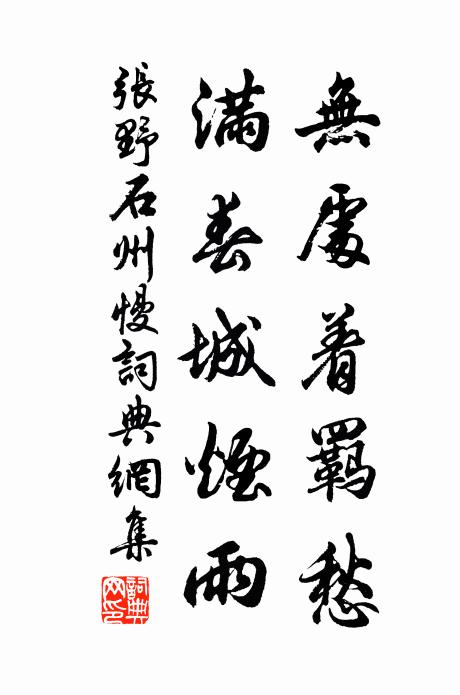 無處着羈愁
滿春城煙雨
張野石州慢詞典網集
詞典網印